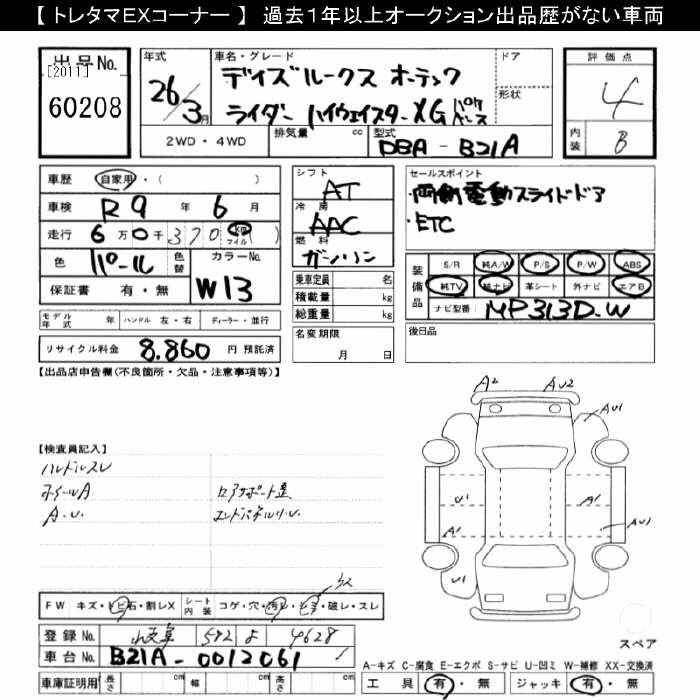 【 トレタマEXコーナー 】 過去１年以上オークション出品歴がない車両
出品No.
[2011]
60208
年式
26/3月
車名・グレード
デイズルークス オーテック
ライダー ハイウェイスターXG
ドア
形状
2WD・4WD
排気量 cc
型式
DBA - B21A
評価点
4
内装
B
車歴 自家用・( )
車検 R9 年 6 月
走行 6万0千370 km マイル ( )
色 パール 色替 カラーNo. W13
保証書 有・無
モデル年式 年 ハンドル 左・右 ディーラー・並行
リサイクル料金 8.860 円 預託済
シフト AT
冷房 AAC
燃料 ガソリン
乗車定員 名
積載量 kg
総重量 kg
名変期限
月 日
セールスポイント
・両側電動スライドドア
・ETC
装備品
S/R 純A/W P/S P/W ABS
純TV 純ナビ 革シート 外ナビ エアB
ナビ型番: MP313D-W
後日品
【出品店申告欄(不良箇所・欠品・注意事項等)】
【検査員記入】
ハンドルスレ
ホイールA
A・U
エンドパネル
A2 AU2
AU1
U1 A1
A1 AU1
U1
スペア
FW キズ・トビ石・割レX シート内装 コゲ・穴・汚レ・シミ・破レ・スレ
登録No. 岐阜 582 よ 4628
車台No. B21A-0012061
車庫証明用 長さ cm 幅 cm 高さ cm
A-キズ C-腐食 E-エクボ S-サビ U-凹ミ W-補修 XX-交換済
工具 有・無 ジャッキ 有・無